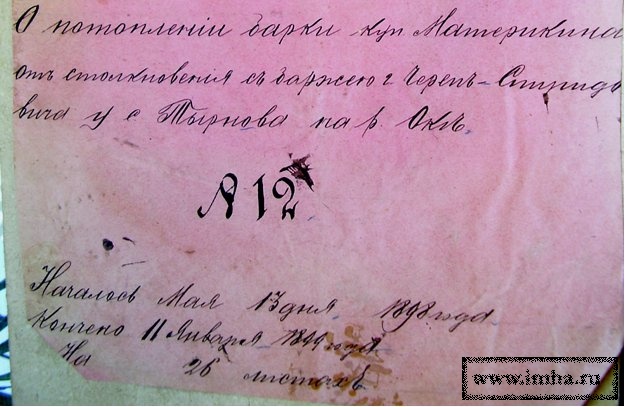 О потопленіи барки куп Материкина
отъ столкновенія съ баржею г Черепъ-Спиридо
вича у с Тырнова на р. Окѣ.
№ 12
Началось Мая 13 дня 1898 года
Кончено 11 Января 1899 года
На 26 листахъ
www.imha.ru